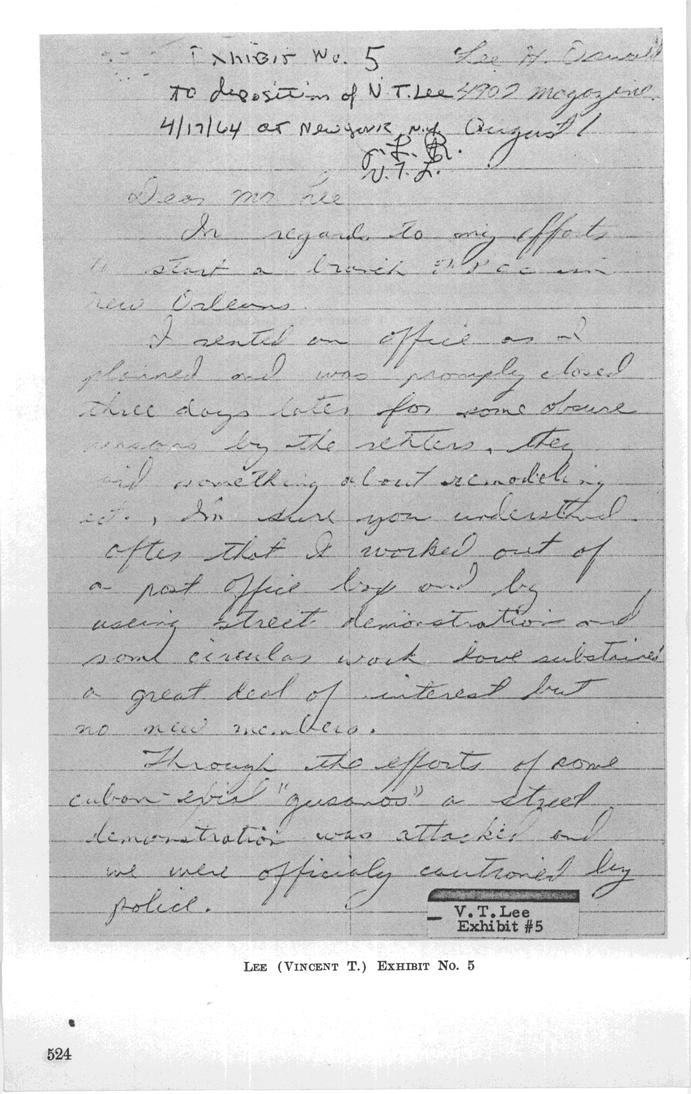 Exhibit No. 5 Lee H. Oswald
to deposition of V.T. Lee 4907 Magazine
4/17/64 at New York, N.Y. August 1
J.L.R.
V.T.L.
Dear Mr Lee
In regards to my efforts
to start a branch FPCC in
New Orleans.
I rented an office as I
planed and was promply closed
three days later for some obsure
reasons by the renters, they
said something about remodeling
ect., I'm sure you understand.
after that I worked out of
a post office box and by
useing street demonstration and
some circular work have substained
a great deal of interest but
no new members.
Through the efforts of some
cuban-exial "gusanos" a street
demonstration was attacked and
we were officialy cautioned by
police.
V.T.Lee
Exhibit #5
LEE (VINCENT T.) EXHIBIT NO. 5
524